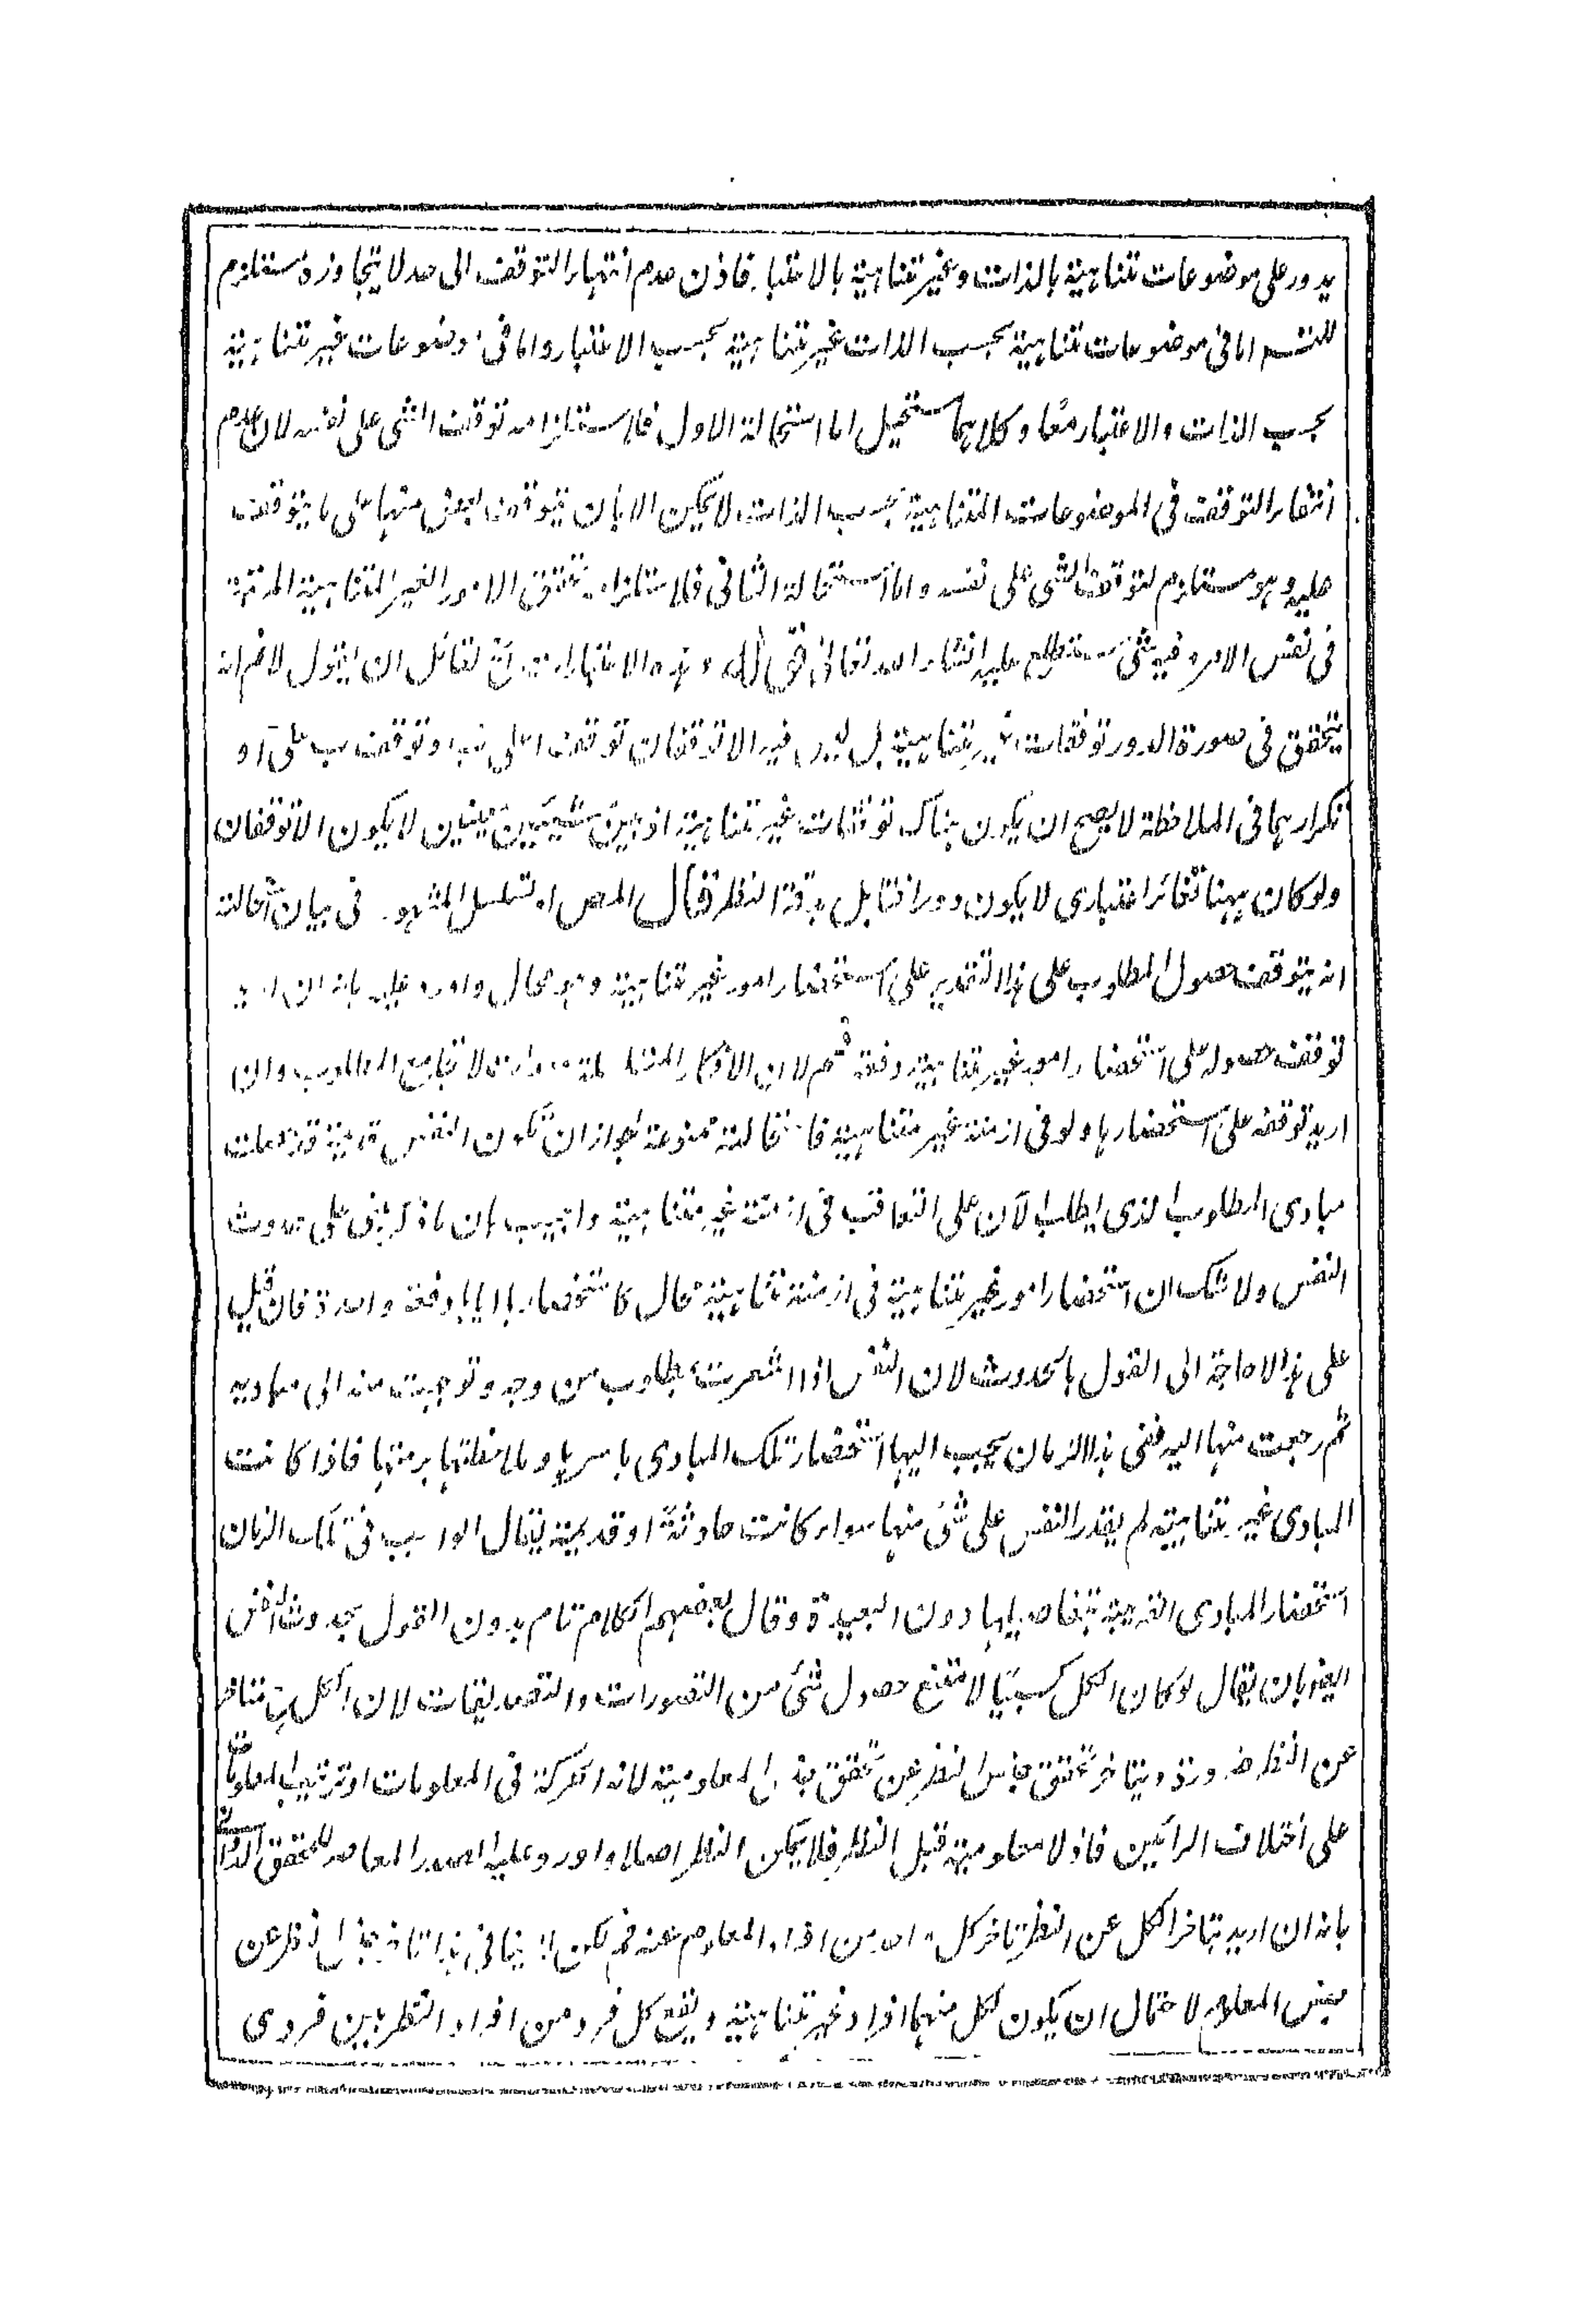 يدور على موضوعات متناهية بالذات وغير متناهية بالاعتبار فاذن عدم انتهاء التوقف الى حد لا يتجاوزه مستلزم
للتسـ اما فى موضوعات متناهية بحسب الذات غير متناهية بحسب الاعتبار واما فى موضوعات غير متناهية
بحسب الذات والاعتبار معًا وكلاهما مستحيل اما استحالة الاول فلاستلزامه توقف الشئ على نفسه لان عدم
انتهاء التوقف فى الموضوعات المتناهية بحسب الذات لا يمكن الا بان يتوقف بعض منها على ما يتوقف
عليه وهو مستلزم لتوقف الشئ على نفسه واما استحالة الثانى فلاستلزامه تحقق الامور الغير المتناهية المرتبة
فى نفس الامر وفيه شئ ستطلع عليه انشاء الله تعالى قوله وهذه الاعتبارات آه لقائل ان يقول لا نم انه
يتحقق فى صورة الدور توقفات غير متناهية بل ليس فيه الا توقفان توقف ا على ب وتوقف ب على ا و
تكرارهما فى الملاحظة لا يصحح ان يكون هناك توقفات غير متناهية اذ بين شيئين معينين لا يكون الا توقفان
ولو كان بينهما تغائر اعتبارى لا يكون دورا فتامل بدقة النظر قال المص او تسلسل المشهور فى بيان استحالته
انه يتوقف حصول المطلوب على هذا التقدير على استحضار امور غير متناهية وهو محال واورد عليه بانه ان اريد
توقف حصوله على استحضار امور غير متناهية دفعة فمم لان الافكار معدات لا تجامع المطلوب وان
اريد توقفه على استحضارها ولو فى ازمنة غير متناهية فاستحالته ممنوعة لجواز ان تكون النفس قديمة قد حصلت
مبادى المطلوب الذى يطلب الآن على التعاقب فى ازمنة غير متناهية واجيب بان ما ذكر مبنى على حدوث
النفس ولا شك ان استحضار امور غير متناهية فى ازمنة متناهية محال كاستحضارها اياها دفعة واحدة فان قيل
على هذا لا حاجة الى القول بالحدوث لان النفس اذا اشعرت بمطلوب من وجه وتوجهت منه الى مباديه
ثم رجعت منها اليه ففى هذا الزمان يجب اليها استحضار تلك المبادى باسرها وملاحظتها برمتها فاذا كانت
المبادى غير متناهية لم يقدر النفس على شئ منها سواء كانت حادثة او قديمة يقال الواجب فى تلك الزمان
استحضار المبادى القريبة بتفاصيلها دون البعيدة وقال بعضهم الكلام تام بدون القول بحدوث النفس
ايضا بان يقال لو كان الكل كسبيًا لامتنع حصول شئ من التصورات والتصديقات لان الكل متاخر
عن النظر ضرورة ويتاخر تحقق جنس النظر عن تحقق جنس المعلومية لانه الحركة فى المعلومات او ترتيب المعلومات
على اختلاف الرائين فاذ لا معلومية قبل النظر فلا يمكن النظر اصلا واورد عليه الصدر المعاصر للمحقق الدوانى
بانه ان اريد بتاخر الكل عن النظر تاخر كل واحد من افراد المعلوم عنه فمم لكن لا ينافى هذا تاخر جنس النظر عن
جنس المعلوم لاحتمال ان يكون لكل منهما افراد غير متناهية ويقع كل فرد من افراد النظر بين فردى